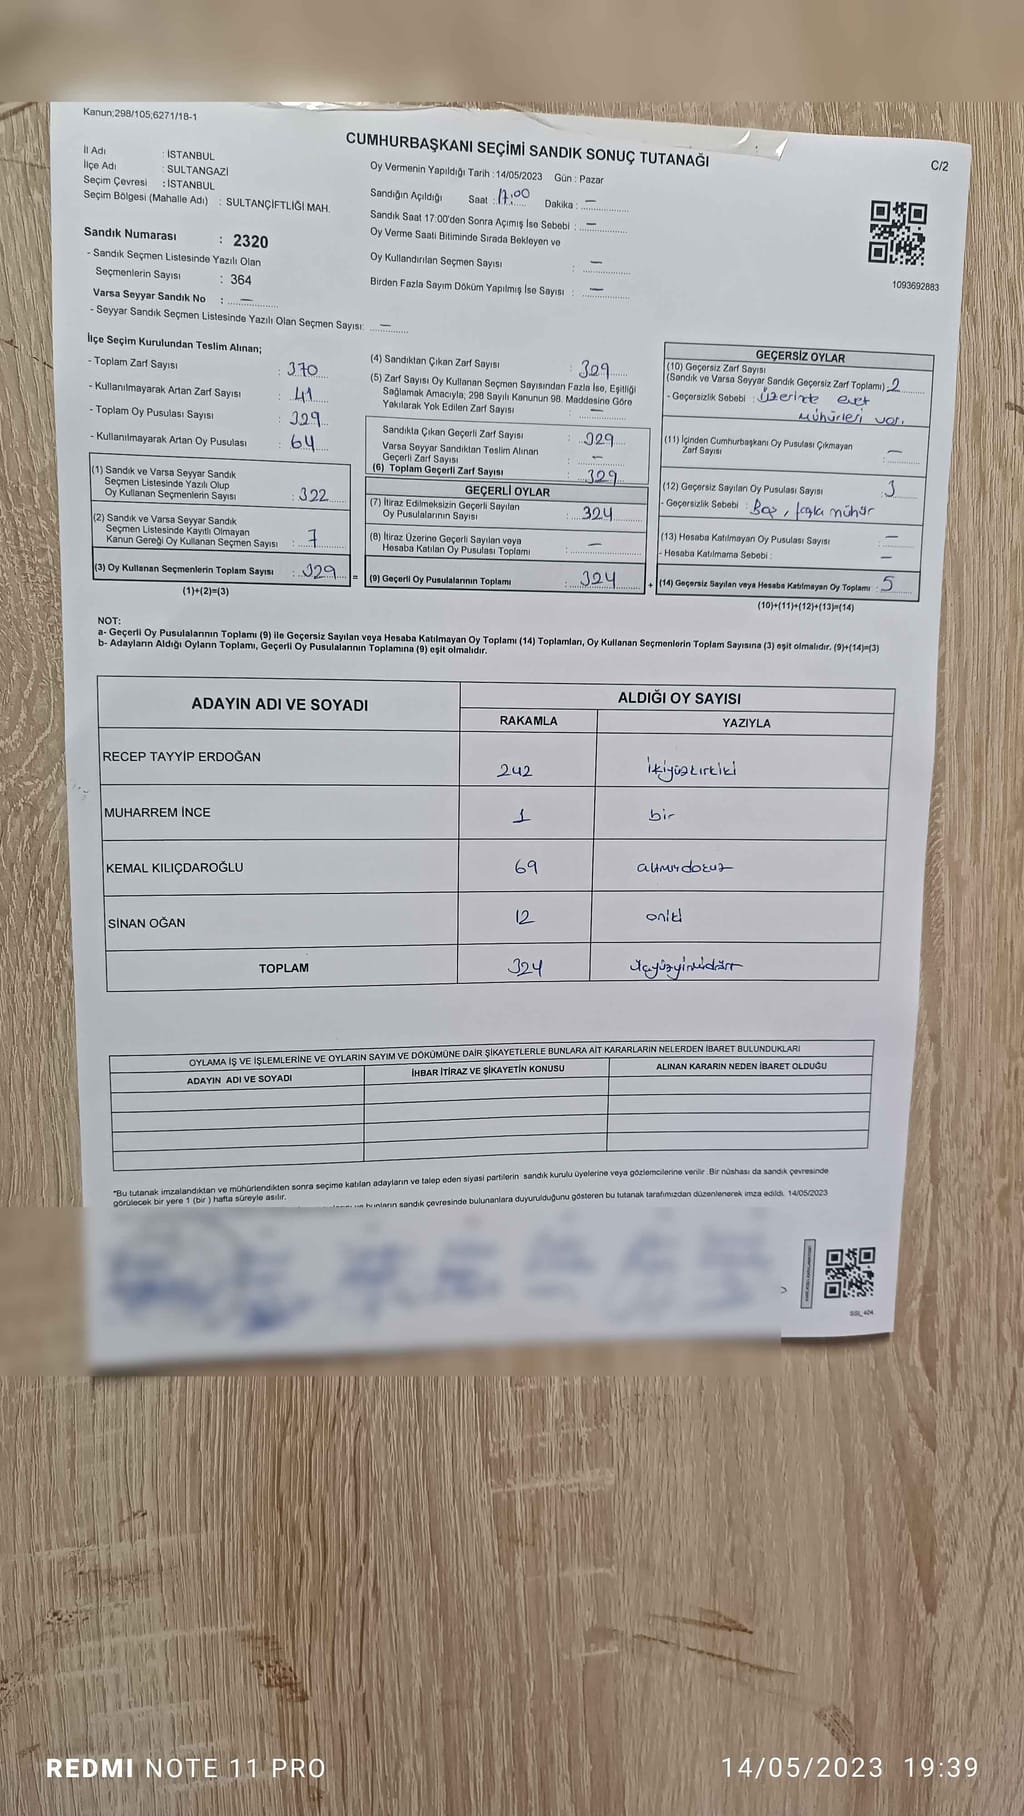 Kanun;298/105;6271/18-1
CUMHURBAŞKANI SEÇİMİ SANDIK SONUÇ TUTANAĞI
C/2
İl Adı : İSTANBUL
İlçe Adı : SULTANGAZİ
Seçim Çevresi : İSTANBUL
Seçim Bölgesi (Mahalle Adı) : SULTANÇİFTLİĞİ MAH.
Oy Vermenin Yapıldığı Tarih : 14/05/2023 Gün : Pazar
Sandığın Açıldığı Saat : 17:00 Dakika : —
Sandık Saat 17:00'den Sonra Açımış İse Sebebi : —
Oy Verme Saati Bitiminde Sırada Bekleyen ve
Oy Kullandırılan Seçmen Sayısı : —
Birden Fazla Sayım Döküm Yapılmış İse Sayısı : —
1093692883
Sandık Numarası : 2320
- Sandık Seçmen Listesinde Yazılı Olan
Seçmenlerin Sayısı : 364
Varsa Seyyar Sandık No : —
- Seyyar Sandık Seçmen Listesinde Yazılı Olan Seçmen Sayısı: —
İlçe Seçim Kurulundan Teslim Alınan;
- Toplam Zarf Sayısı : 370
- Kullanılmayarak Artan Zarf Sayısı : 41
- Toplam Oy Pusulası Sayısı : 329
- Kullanılmayarak Artan Oy Pusulası : 64
(1) Sandık ve Varsa Seyyar Sandık
Seçmen Listesinde Yazılı Olup
Oy Kullanan Seçmenlerin Sayısı : 322
(2) Sandık ve Varsa Seyyar Sandık
Seçmen Listesinde Kayıtlı Olmayan
Kanun Gereği Oy Kullanan Seçmen Sayısı : 7
(3) Oy Kullanan Seçmenlerin Toplam Sayısı : 329
(1)+(2)=(3)
(4) Sandıktan Çıkan Zarf Sayısı : 329
(5) Zarf Sayısı Oy Kullanan Seçmen Sayısından Fazla İse, Eşitliği
Sağlamak Amacıyla; 298 Sayılı Kanunun 98. Maddesine Göre
Yakılarak Yok Edilen Zarf Sayısı : —
Sandıkta Çıkan Geçerli Zarf Sayısı : 329
Varsa Seyyar Sandıktan Teslim Alınan
Geçerli Zarf Sayısı : —
(6) Toplam Geçerli Zarf Sayısı : 329
GEÇERLİ OYLAR
(7) İtiraz Edilmeksizin Geçerli Sayılan
Oy Pusulalarının Sayısı : 324
(8) İtiraz Üzerine Geçerli Sayılan veya
Hesaba Katılan Oy Pusulası Toplamı : —
= (9) Geçerli Oy Pusulalarının Toplamı : 324 +
GEÇERSİZ OYLAR
(10) Geçersiz Zarf Sayısı
(Sandık ve Varsa Seyyar Sandık Geçersiz Zarf Toplamı) : 2
- Geçersizlik Sebebi : Üzerinde evet
mühürleri var.
(11) İçinden Cumhurbaşkanı Oy Pusulası Çıkmayan
Zarf Sayısı : —
(12) Geçersiz Sayılan Oy Pusulası Sayısı : 3
- Geçersizlik Sebebi : Boş, fazla mühür
(13) Hesaba Katılmayan Oy Pusulası Sayısı : —
- Hesaba Katılmama Sebebi : —
(14) Geçersiz Sayılan veya Hesaba Katılmayan Oy Toplamı : 5
(10)+(11)+(12)+(13)=(14)
NOT:
a- Geçerli Oy Pusulalarının Toplamı (9) ile Geçersiz Sayılan veya Hesaba Katılmayan Oy Toplamı (14) Toplamları, Oy Kullanan Seçmenlerin Toplam Sayısına (3) eşit olmalıdır. (9)+(14)=(3)
b- Adayların Aldığı Oyların Toplamı, Geçerli Oy Pusulalarının Toplamına (9) eşit olmalıdır.
ADAYIN ADI VE SOYADI
ALDIĞI OY SAYISI
RAKAMLA YAZIYLA
RECEP TAYYİP ERDOĞAN 242 ikiyüzkırkiki
MUHARREM İNCE 1 bir
KEMAL KILIÇDAROĞLU 69 altmışdokuz
SİNAN OĞAN 12 oniki
TOPLAM 324 üçyüzyirmidört
OYLAMA İŞ VE İŞLEMLERİNE VE OYLARIN SAYIM VE DÖKÜMÜNE DAİR ŞİKAYETLERLE BUNLARA AİT KARARLARIN NELERDEN İBARET BULUNDUKLARI
ADAYIN ADI VE SOYADI İHBAR İTİRAZ VE ŞİKAYETİN KONUSU ALINAN KARARIN NEDEN İBARET OLDUĞU
*Bu tutanak imzalandıktan ve mühürlendikten sonra seçime katılan adayların ve talep eden siyasi partilerin sandık kurulu üyelerine veya gözlemcilerine verilir. Bir nüshası da sandık çevresinde
görülecek bir yere 1 (bir) hafta süreyle asılır.
bunların sandık çevresinde bulunanlara duyurulduğunu gösteren bu tutanak tarafımızdan düzenlenerek imza edildi. 14/05/2023
SSI_404
REDMI NOTE 11 PRO
14/05/2023 19:39